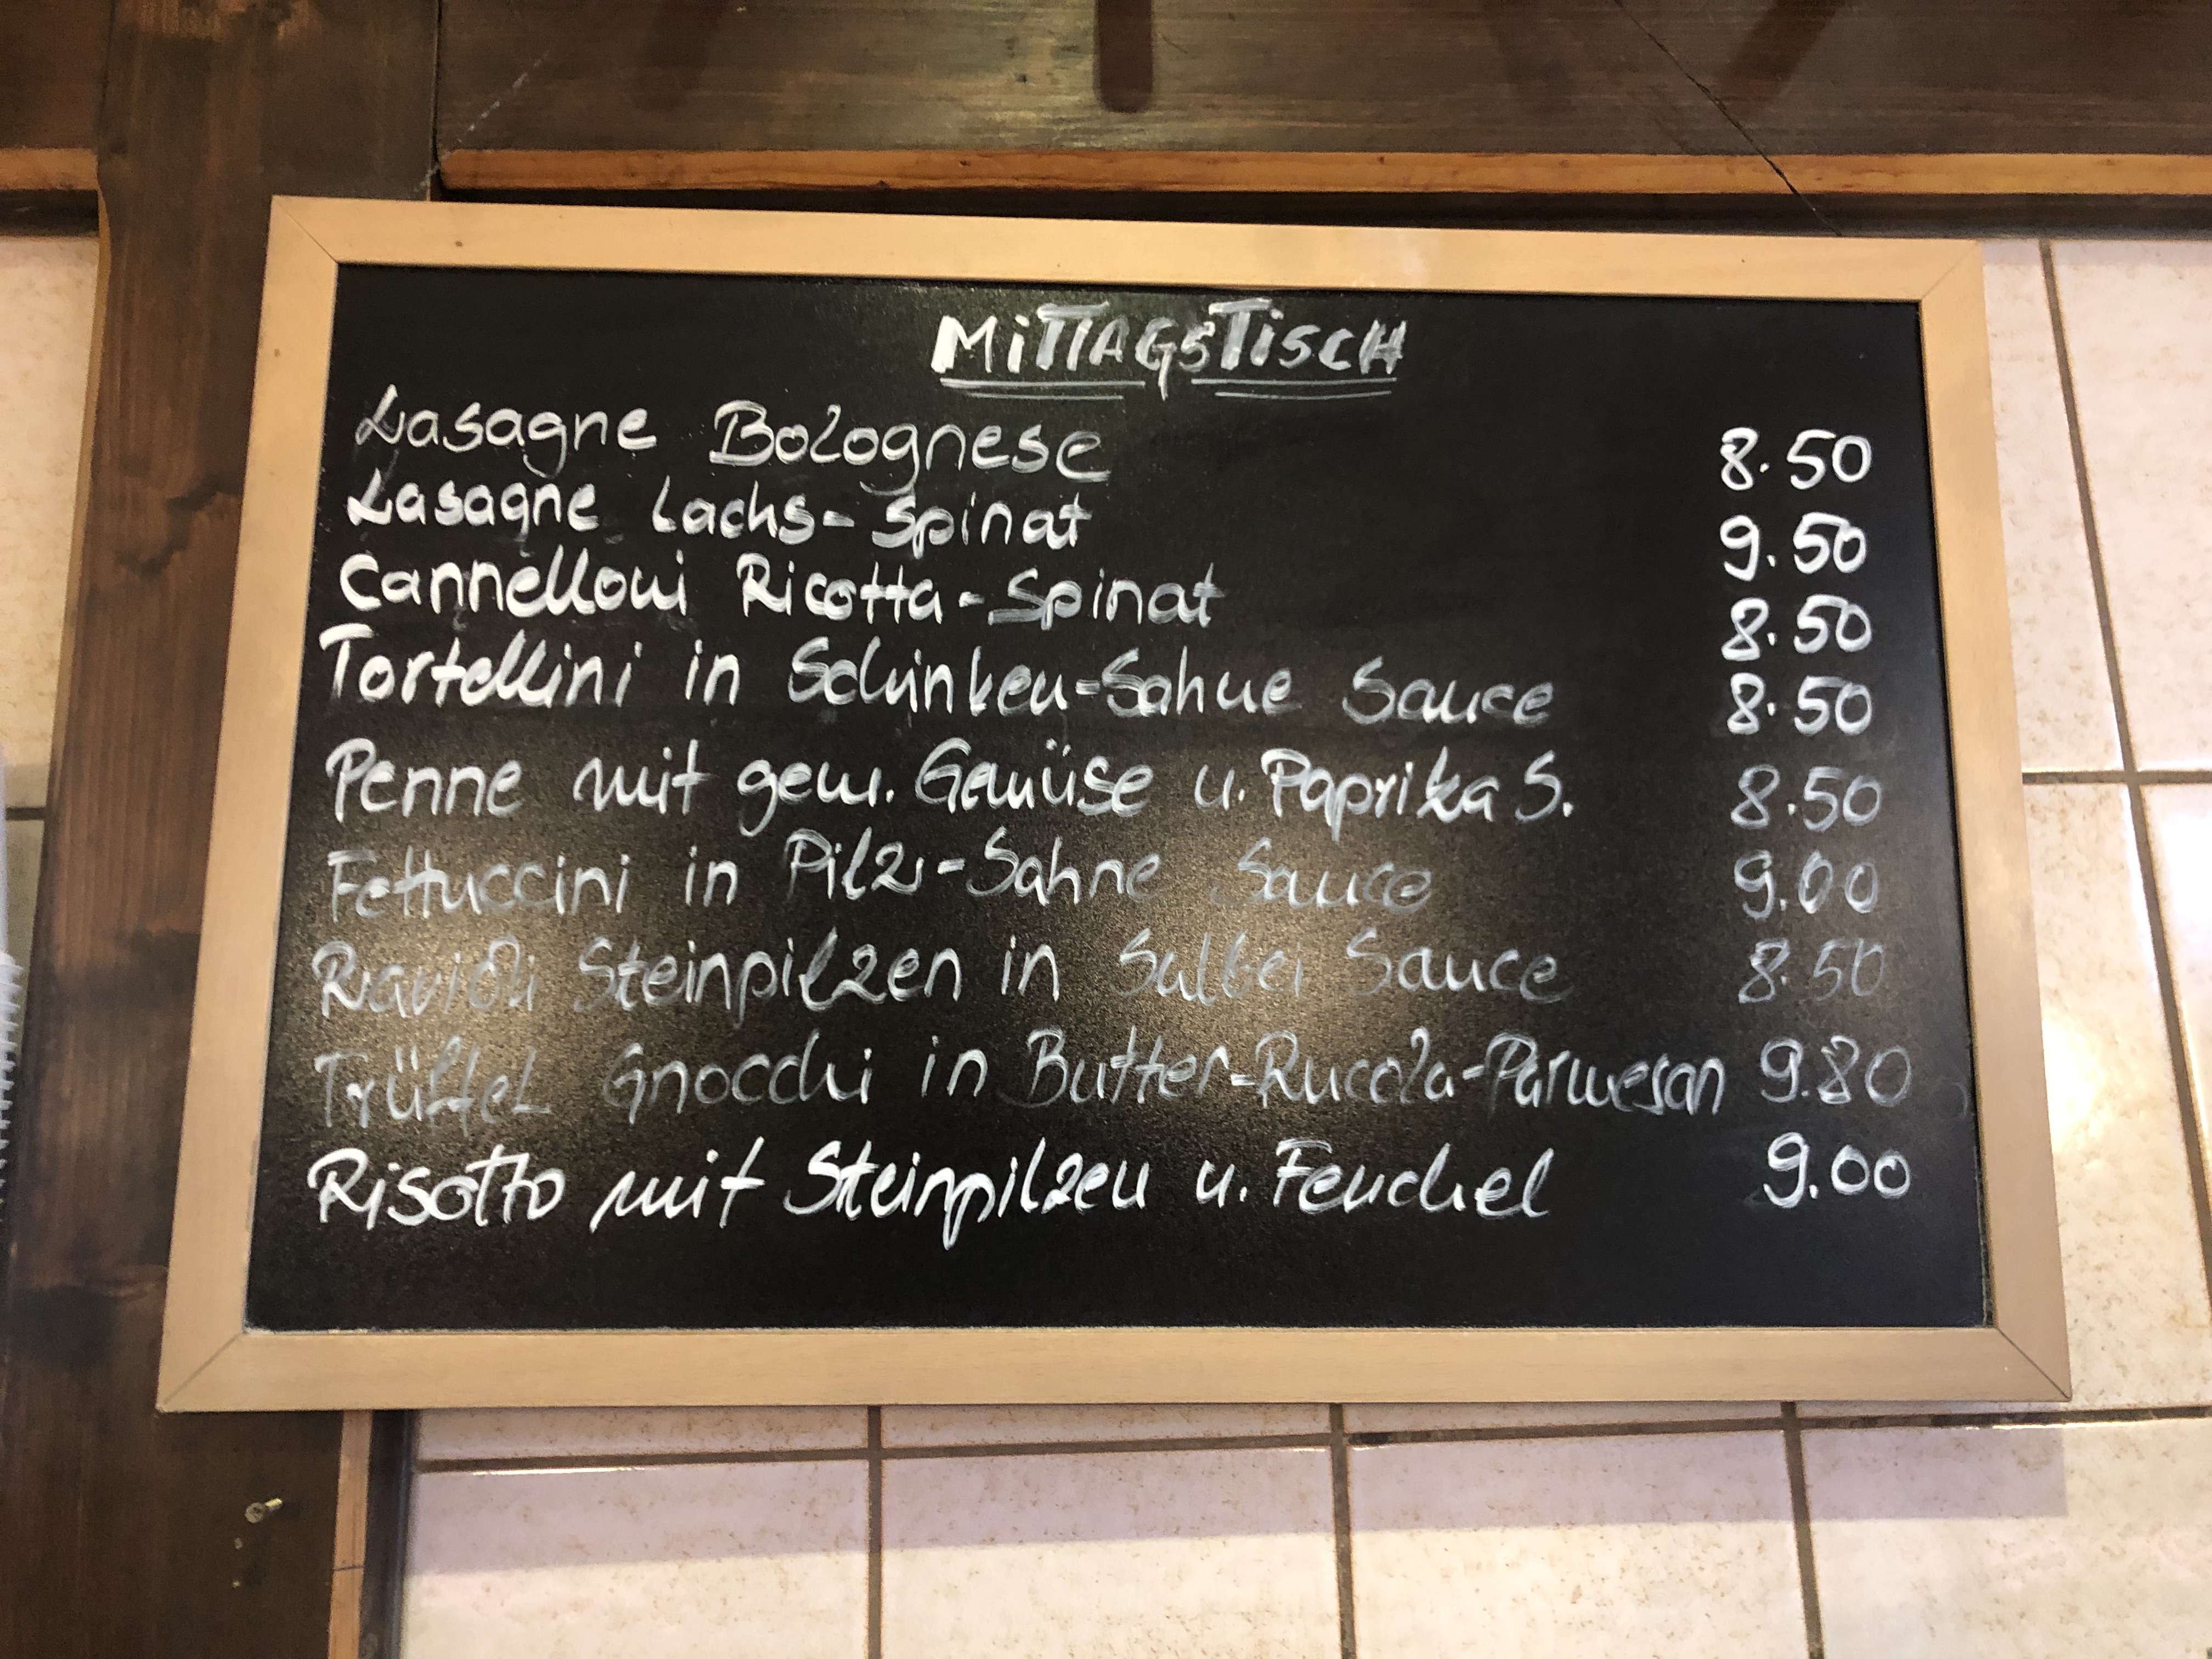 MiTTAGSTiSCH
Lasagne Bolognese 8.50
Lasagne Lachs-Spinat 9.50
Cannelloni Ricotta-Spinat 8.50
Tortellini in Schinken-Sahne Sauce 8.50
Penne mit gem. Gemüse u. Paprika S. 8.50
Fettuccini in Pilz-Sahne Sauce 9.00
Ravioli Steinpilzen in Salbei Sauce 8.50
Trüffel Gnocchi in Butter-Rucola-Parmesan 9.80
Risotto mit Steinpilzen u. Fenchel 9.00